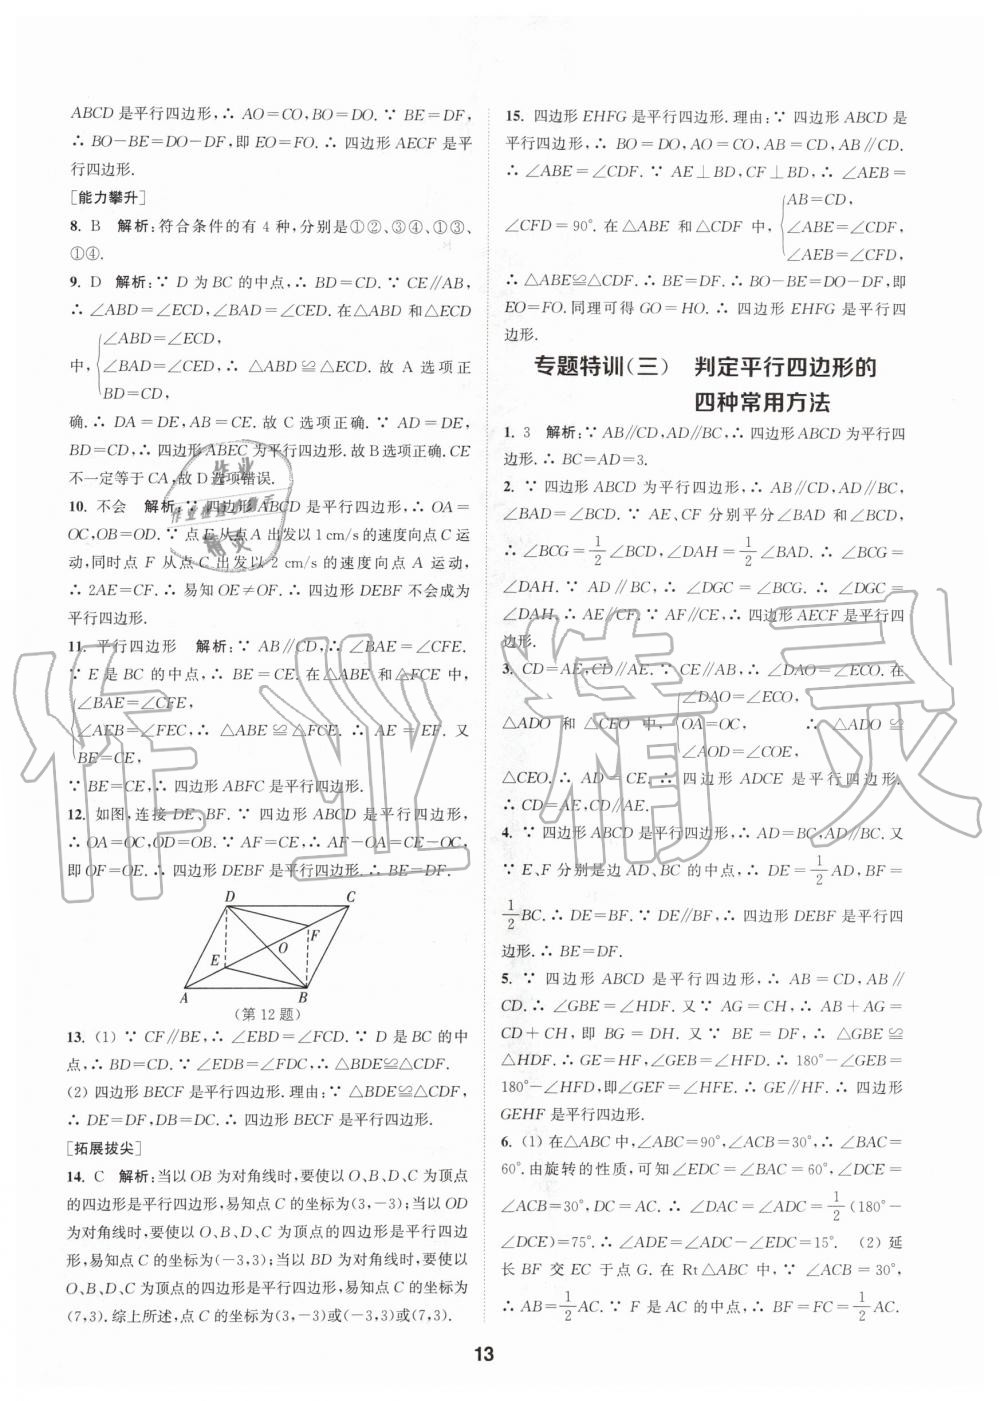 ABCD 是平行四边形,∴ AO=CO,BO=DO.∵ BE=DF,
∴ BO-BE=DO-DF,即 EO=FO.∴ 四边形 AECF 是平
行四边形.
[能力攀升]
8. B 解析:符合条件的有 4 种,分别是①②、③④、①③、
①④.
9. D 解析:∵ D 为 BC 的中点,∴ BD=CD.∵ CE∥AB,
∴ ∠ABD=∠ECD,∠BAD=∠CED.在△ABD 和△ECD
中,{∠ABD=∠ECD,
∠BAD=∠CED,
BD=CD,
∴ △ABD≌△ECD.故 A 选项正
确.∴ DA=DE,AB=CE.故 C 选项正确.∵ AD=DE,
BD=CD,∴ 四边形 ABEC 为平行四边形.故 B 选项正确.CE
不一定等于 CA,故 D 选项错误.
10. 不会 解析:∵ 四边形 ABCD 是平行四边形,∴ OA=
OC,OB=OD.∵ 点 E 从点 A 出发以 1 cm/s 的速度向点 C 运
动,同时点 F 从点 C 出发以 2 cm/s 的速度向点 A 运动,
∴ 2AE=CF.∴ 易知 OE≠OF.∴ 四边形 DEBF 不会成为
平行四边形.
11. 平行四边形 解析:∵ AB∥CD,∴ ∠BAE=∠CFE.
∵ E 是 BC 的中点,∴ BE=CE.在△ABE 和△FCE 中,
{∠BAE=∠CFE,
∠AEB=∠FEC,
BE=CE,
∴ △ABE≌△FCE.∴ AE=EF.又
∵ BE=CE,∴ 四边形 ABFC 是平行四边形.
12. 如图,连接 DE、BF.∵ 四边形 ABCD 是平行四边形,
∴ OA=OC,OD=OB.∵ AF=CE,∴ AF-OA=CE-OC,
即 OF=OE.∴ 四边形 DEBF 是平行四边形.∴ BE=DF.
D C
F
O
E
A B
(第 12 题)
13. (1) ∵ CF∥BE,∴ ∠EBD=∠FCD.∵ D 是 BC 的中
点,∴ BD=CD.∵ ∠EDB=∠FDC,∴ △BDE≌△CDF.
(2) 四边形 BECF 是平行四边形.理由:∵ △BDE≌△CDF,
∴ DE=DF,DB=DC.∴ 四边形 BECF 是平行四边形.
[拓展拔尖]
14. C 解析:当以 OB 为对角线时,要使以 O、B、D、C 为顶点
的四边形是平行四边形,易知点 C 的坐标为(3,-3);当以 OD
为对角线时,要使以 O、B、D、C 为顶点的四边形是平行四边
形,易知点 C 的坐标为(-3,3);当以 BD 为对角线时,要使以
O、B、D、C 为顶点的四边形是平行四边形,易知点 C 的坐标为
(7,3).综上所述,点 C 的坐标为(3,-3)或(-3,3)或(7,3).
15. 四边形 EHFG 是平行四边形.理由:∵ 四边形 ABCD 是
平行四边形,∴ BO=DO,AO=CO,AB=CD,AB∥CD.
∴ ∠ABE=∠CDF.∵ AE⊥BD,CF⊥BD,∴ ∠AEB=
∠CFD=90°.在△ABE 和△CDF 中,{AB=CD,
∠ABE=∠CDF,
∠AEB=∠CFD,
∴ △ABE≌△CDF.∴ BE=DF.∴ BO-BE=DO-DF,即
EO=FO.同理可得 GO=HO.∴ 四边形 EHFG 是平行四
边形.
专题特训(三) 判定平行四边形的
四种常用方法
1. 3 解析:∵ AB∥CD,AD∥BC,∴ 四边形 ABCD 为平行四
边形.∴ BC=AD=3.
2. ∵ 四边形 ABCD 为平行四边形,∴ AB∥CD,AD∥BC,
∠BAD=∠BCD.∵ AE、CF 分别平分∠BAD 和∠BCD,
∴ ∠BCG=1/2∠BCD,∠DAH=1/2∠BAD.∴ ∠BCG=
∠DAH.∵ AD∥BC,∴ ∠DGC=∠BCG.∴ ∠DGC=
∠DAH.∴ AE∥CF.∵ AF∥CE,∴ 四边形 AECF 是平行四
边形.
3. CD=AE,CD∥AE.∵ CE∥AB,∴ ∠DAO=∠ECO.在
△ADO 和 △CEO 中,{∠DAO=∠ECO,
OA=OC,
∠AOD=∠COE,
∴ △ADO≌
△CEO.∴ AD=CE.∴ 四边形 ADCE 是平行四边形.
∴ CD=AE,CD∥AE.
4. ∵ 四边形 ABCD 是平行四边形,∴ AD=BC,AD∥BC.又
∵ E、F 分别是边 AD、BC 的中点,∴ DE=1/2AD,BF=
1/2BC.∴ DE=BF.∵ DE∥BF,∴ 四边形 DEBF 是平行四
边形.∴ BE=DF.
5. ∵ 四边形 ABCD 是平行四边形,∴ AB=CD,AB∥
CD.∴ ∠GBE=∠HDF.又∵ AG=CH,∴ AB+AG=
CD+CH,即 BG=DH.又∵ BE=DF,∴ △GBE≌
△HDF.∴ GE=HF,∠GEB=∠HFD.∴ 180°-∠GEB=
180°-∠HFD,即∠GEF=∠HFE.∴ GE∥HF.∴ 四边形
GEHF 是平行四边形.
6. (1) 在△ABC 中,∠ABC=90°,∠ACB=30°,∴ ∠BAC=
60°.由旋转的性质,可知∠EDC=∠BAC=60°,∠DCE=
∠ACB=30°,DC=AC.∴ ∠DAC=∠ADC=1/2(180°-
∠DCE)=75°.∴ ∠ADE=∠ADC-∠EDC=15°. (2) 延
长 BF 交 EC 于点 G.在 Rt△ABC 中,∵ ∠ACB=30°,
∴ AB=1/2AC.∵ F 是 AC 的中点,∴ BF=FC=1/2AC.
13
作业
作业检查小助手
精灵
作业精灵